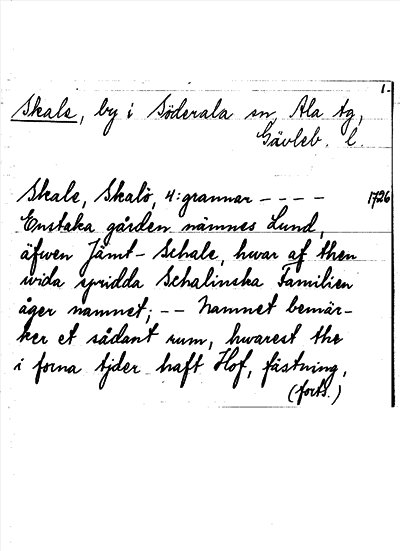 1.
Skale, by i Söderala sn, Ala tg,
Gävleb. l.
Skale, Skalö, 4: grannar - - - - 1726
Enstaka gården nämnes Lund,
äfwen Jämt-Schale, hwar af then
wida spridda Schalinska Familien
äger namnet; -- Namnet bemär-
ker et sådant rum, hwarest the
i forna tjder haft Hof, fästning,
(forts.)